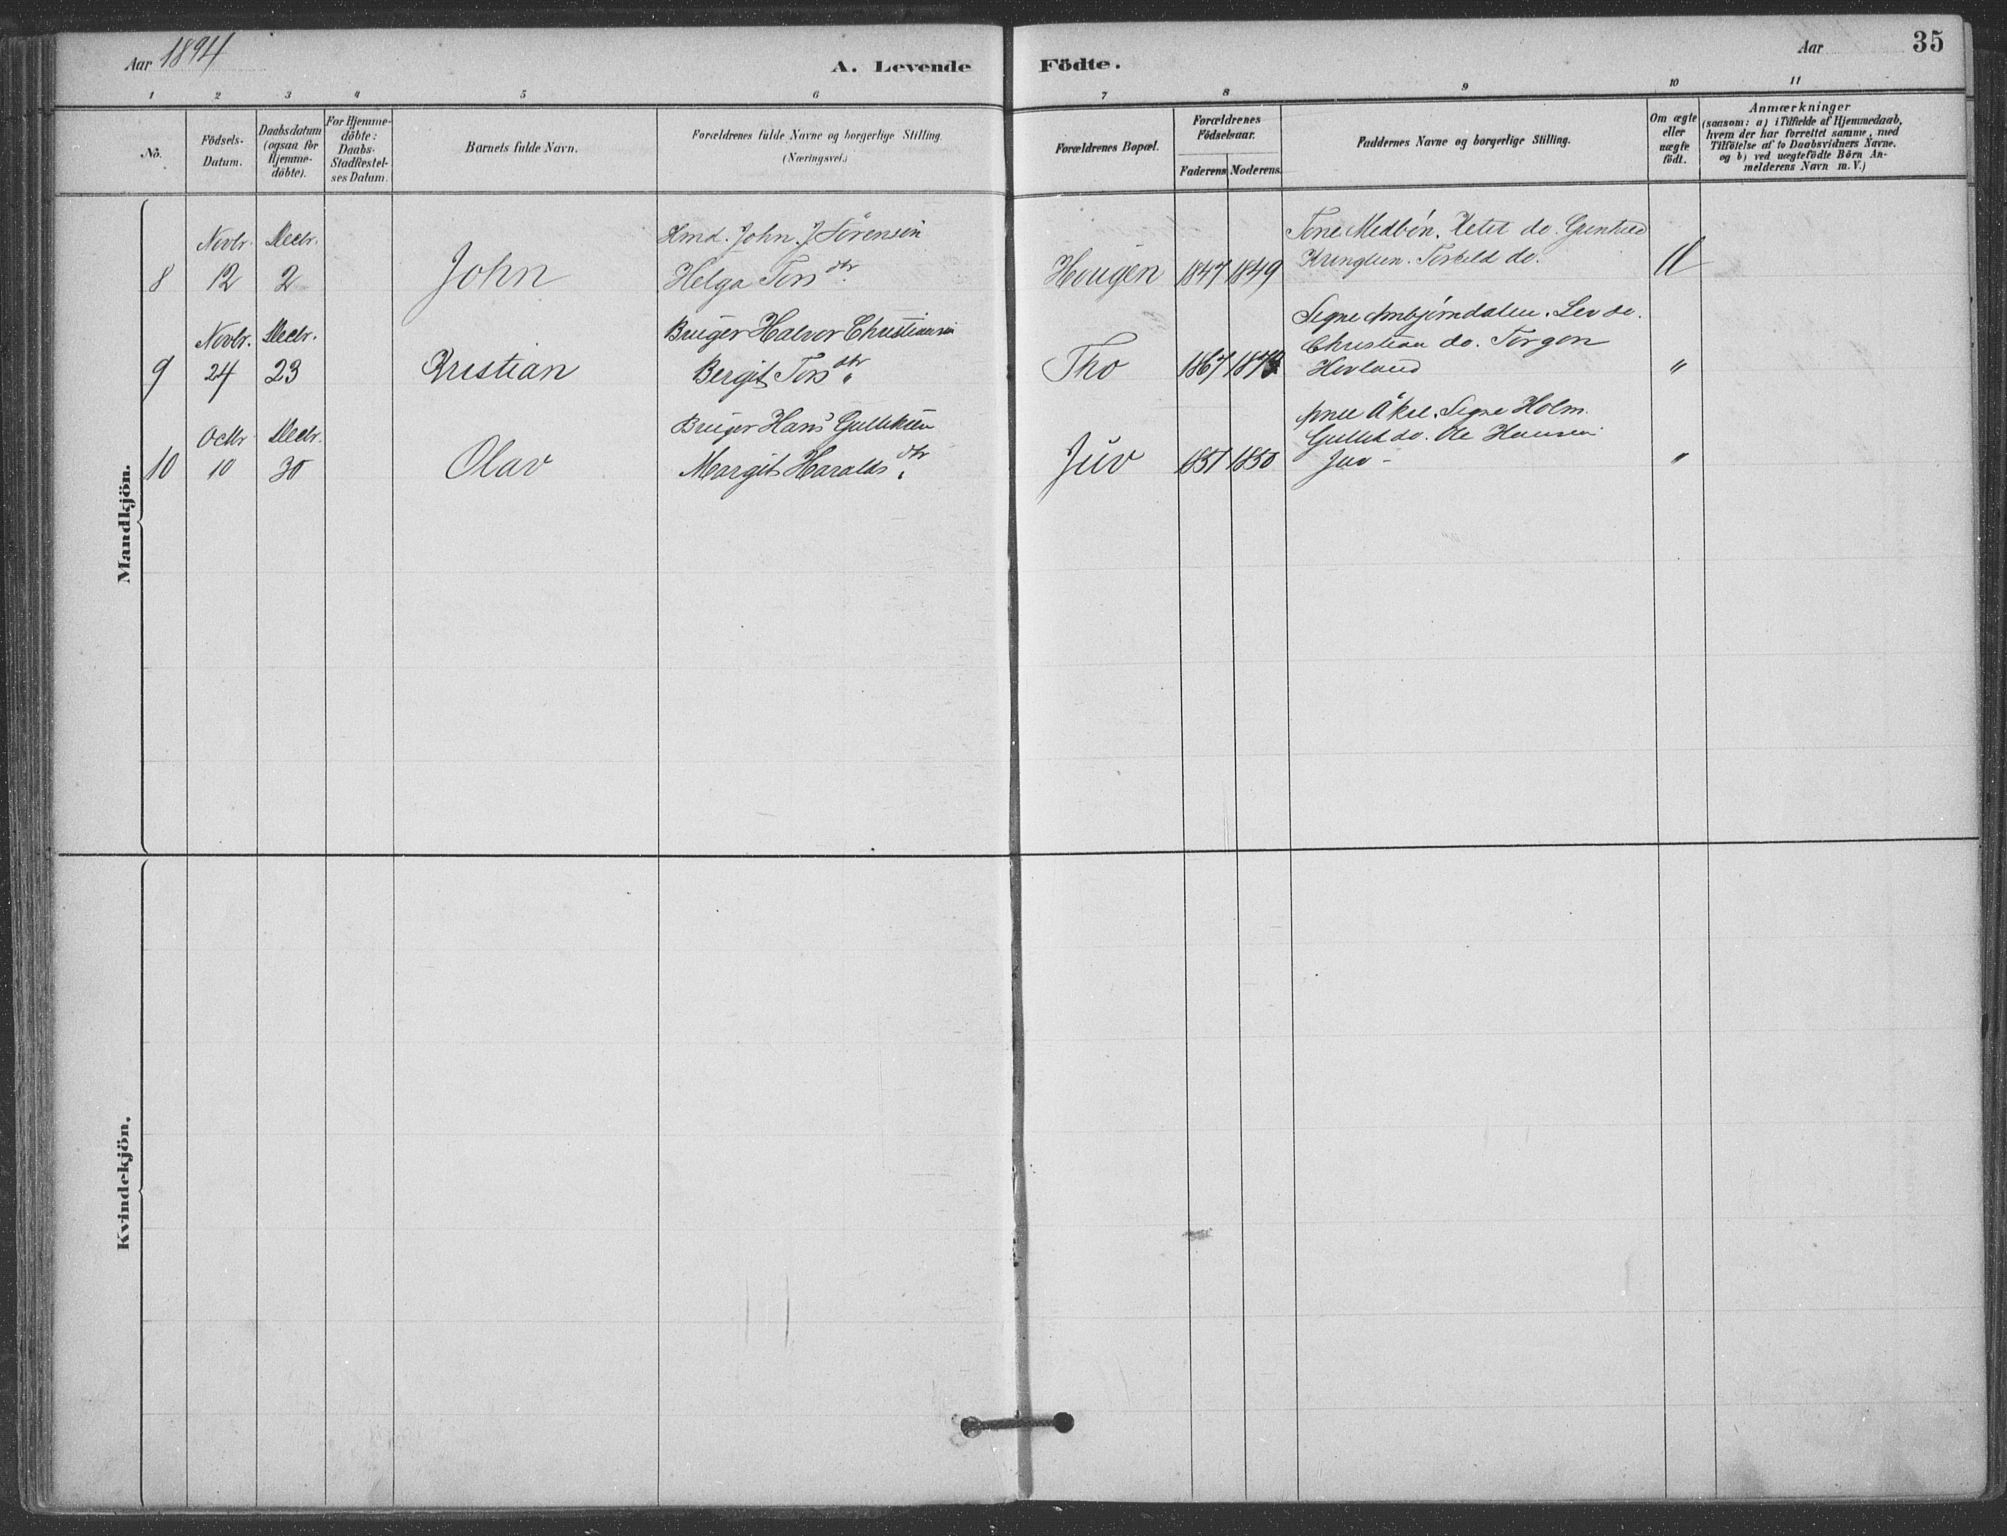 Aar 1894
A. Levende Födte.
Aar
35
1 2 3 4 5 6 7 8 9 10 11
No.
Födsels-
Datum.
Daabsdatum
(ogsaa for
Hjemme-
döbte).
For Hjemme-
döbte:
Daabs-
Stadfæstel-
ses Datum.
Barnets fulde Navn.
Forældrenes fulde Navne og borgerlige Stilling.
(Næringsvei.)
Forældrenes Bopæl.
Forældrenes
Födselsaar.
Faderens Moderens.
Faddernes Navne og borgerlige Stilling.
Om ægte
eller
uægte
födt.
Anmærkninger
(saasom: a) i Tilfælde af Hjemmedaab,
hvem der har forrettet samme, med
Tilföielse af to Daabsvidners Navne.
og b) ved uægtefödte Börn An-
melderens Navn m. V.)
Mandkjön.
Novbr. Decbr. Hmd. John J. Sørensen Tone Medbøn. Ketil do. Gunhild
8 12 2 John Helga Tors dtr. Hougen 1847 1849 Kringlen. Torkild do. "
Novbr. Decbr. Bruger Halvor Christiansen Signe Ambjørndalen. Lev do.
9 24 23 Kristian Bergit Tors dtr. Tho 1867 Christian do. Torgon
Hovland "
Octbr. Decbr. Bruger Hans Gulliksen Anne Åkre. Signe Holm.
10 10 30 Olav Margit Haralds dtr. Juv 1851 1850 Gullik do. Ole Hansen
Juv - "
Kvindekjön.